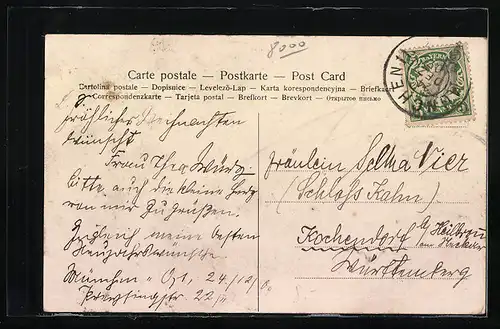 8000
Carte postale – Postkarte – Post Card
Cartolina postale – Dopisnice – Levelező-Lap – Karta korespondencyjna – Briefkaart
Correspondenzkarte – Tarjeta postal – Brefkort – Brevkort – Открытое письмо
MÜNCHEN
BAYERN
fröhliche Weihnachten
wünscht
Frau Thea
bitte auch die kleine
von mir zu grüßen.
Zugleich meine besten
Neujahrswünsche
München Ost, 24/12/
22
Fräulein Selma Vier
(Schloss Kahn)
Kochendorf b/ Heilbronn
am Neckar
Württemberg